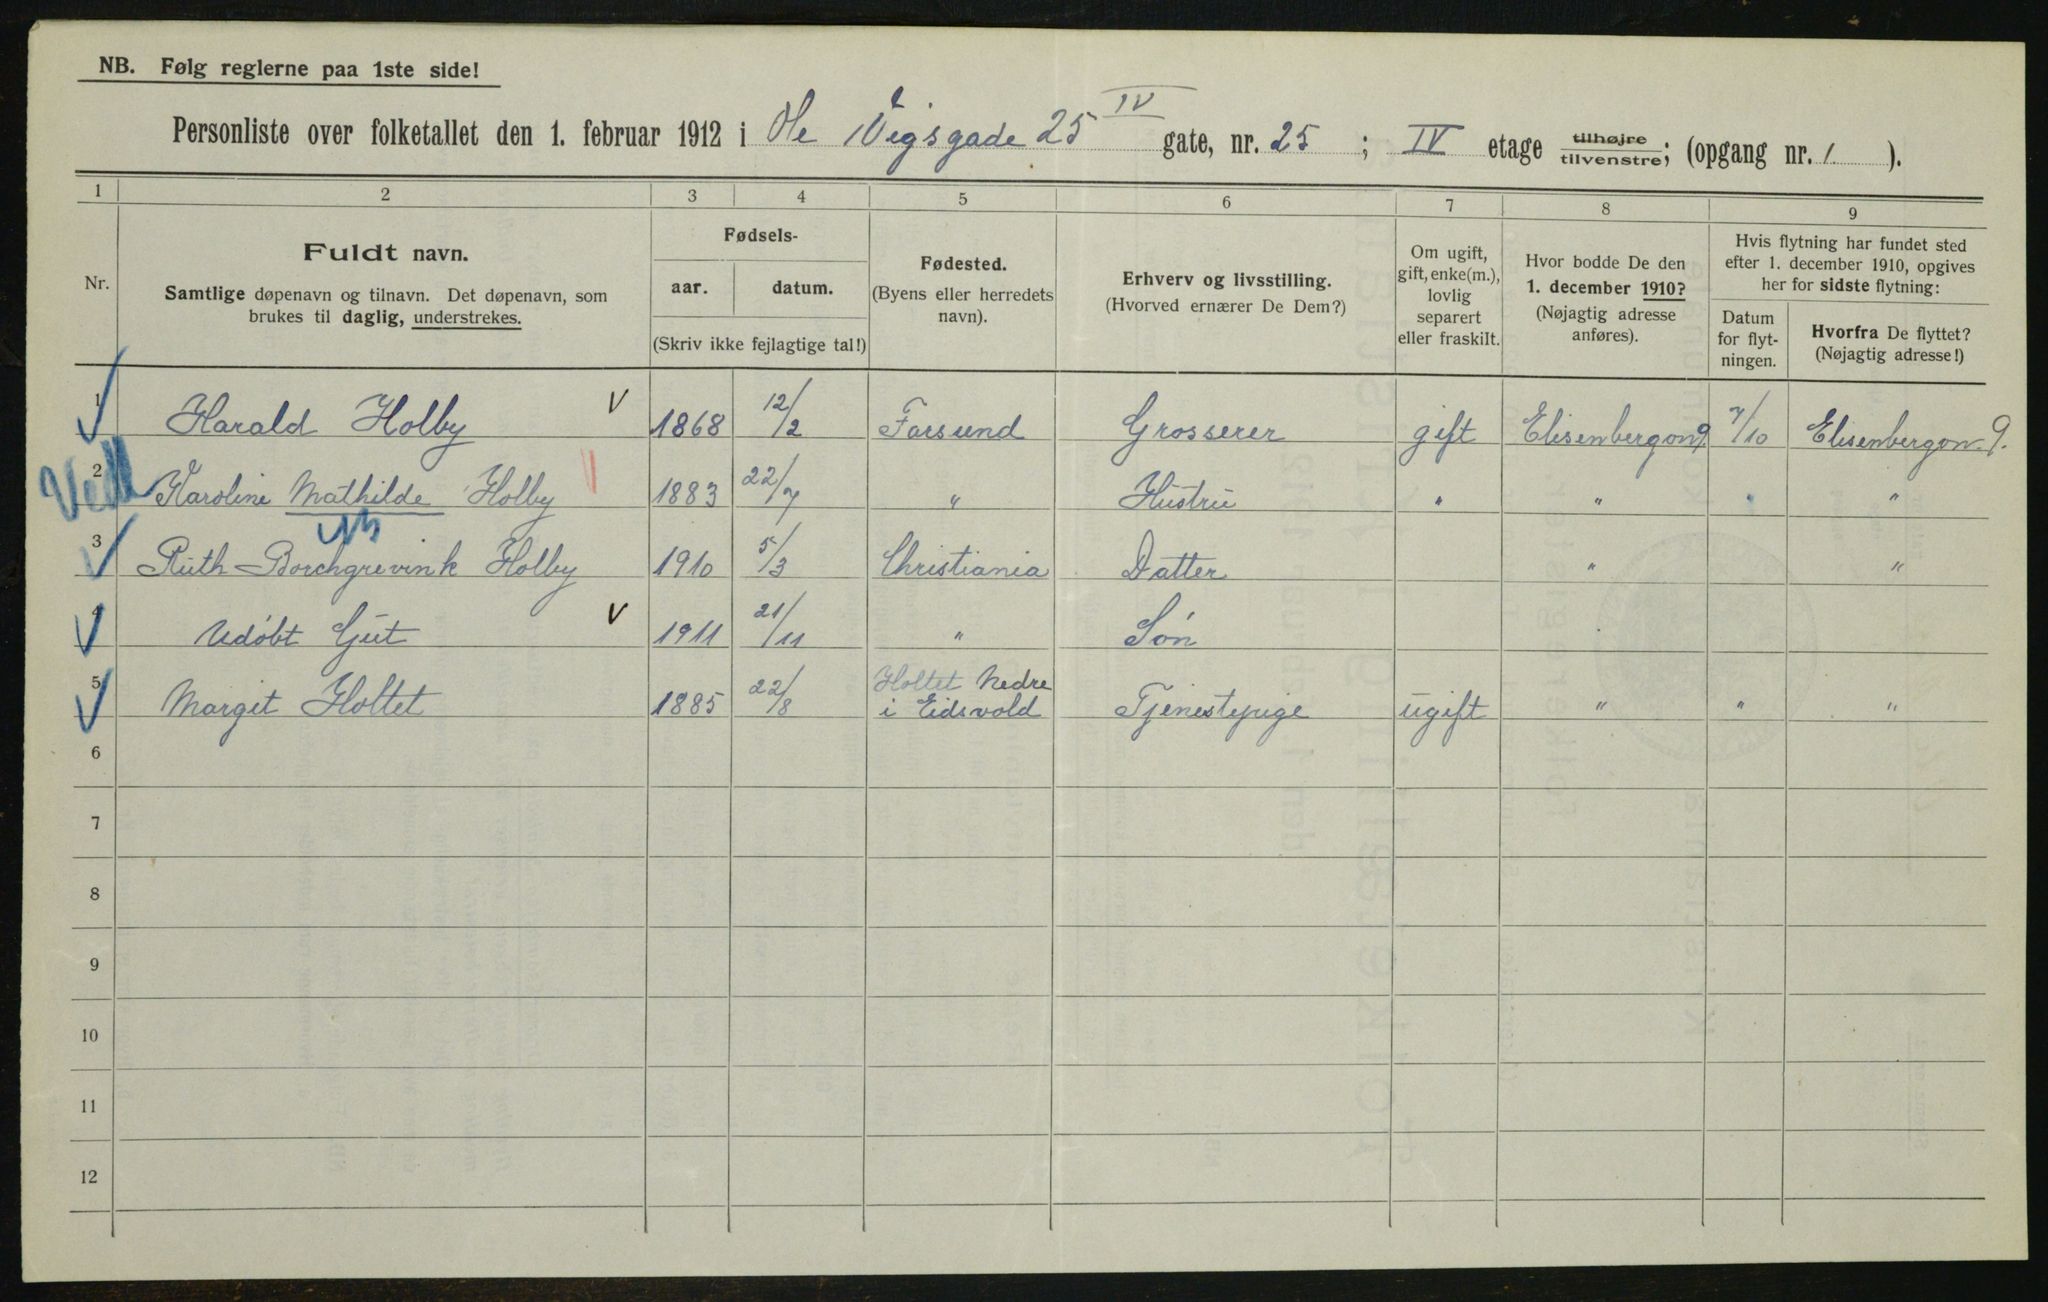 NB. Følg reglerne paa 1ste side!
Personliste over folketallet den 1. februar 1912 i Ole Vigsgade 25 IV gate, nr. 25 ; IV etage tilhøjre tilvenstre; (opgang nr. 1 ).
1 2 3 4 5 6 7 8 9
Nr.
Fuldt navn.
Samtlige døpenavn og tilnavn. Det døpenavn, som
brukes til daglig, understrekes.
Fødsels-
aar. datum.
(Skriv ikke fejlagtige tal!)
Fødested.
(Byens eller herredets
navn).
Erhverv og livsstilling.
(Hvorved ernærer De Dem?)
Om ugift,
gift, enke(m.),
lovlig
separert
eller fraskilt.
Hvor bodde De den
1. december 1910?
(Nøjagtig adresse
anføres).
Hvis flytning har fundet sted
efter 1. december 1910, opgives
her for sidste flytning:
Datum
for flyt-
ningen.
Hvorfra De flyttet?
(Nøjagtig adresse!)
1 Harald Holby V 1868 12/2 Farsund Grosserer gift Elisenbergon 9. 7/10 Elisenbergon. 9.
2 Karoline Mathilde Holby 1883 22/7 " Hustru " " "
3 Ruth Borchgrevink Holby 1910 5/3 Christiania Datter " "
4 Udøbt Gut V 1911 21/11 " Søn
5 Margit Holtet 1885 22/8 Holtet Nedre
i Eidsvold Tjenestepige ugift " " "
6
7
8
9
10
11
12